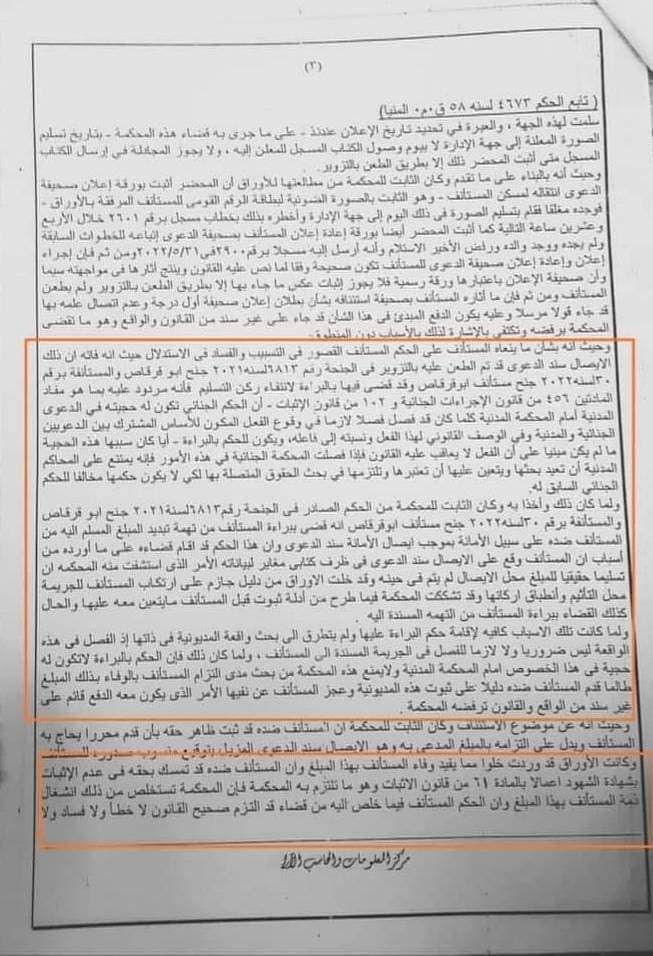 (٣)
( تابع الحكم ٤٦٧٣ لسنه ٥٨ ق٠م٠ المنيا)
سلمت لهذه الجهة ، والعبرة في تحديد تاريخ الإعلان عندئذ - على ما جرى به قضاء هذه المحكمة - بتاريخ تسليم
الصورة المعلنة إلى جهة الإدارة لا بيوم وصول الكتاب المسجل للمعلن إليه ، ولا يجوز المجادلة في إرسال الكتاب
المسجل متى أثبت المحضر ذلك إلا بطريق الطعن بالتزوير.
وحيث أنه بالبناء على ما تقدم وكان الثابت للمحكمة من مطالعتها للأوراق أن المحضر أثبت بورقة إعلان صحيفة
الدعوى انتقاله لمسكن المستأنف - وهو الثابت بالصورة الضوئية لبطاقة الرقم القومى للمستأنف المرفقة بالأوراق -
فوجده مغلقا فقام بتسليم الصورة في ذلك اليوم إلى جهة الإدارة وأخطره بذلك بخطاب مسجل برقم ٢٦٠١ خلال الأربع
وعشرين ساعة التالية كما أثبت المحضر أيضا بورقة إعادة إعلان المستأنف بصحيفة الدعوى إتباعه للخطوات السابقة
ولم يجده ووجد والده ورفض الأخير الاستلام وأنه أرسل إليه مسجلا برقم ٢٩٠٠في٢٠٢٢/٥/٣١ ومن ثم فإن إجراء
إعلان وإعادة إعلان صحيفة الدعوى للمستأنف تكون صحيحة وفقا لما نص عليه القانون وينتج أثارها في مواجهته سيما
وأن صحيفة الإعلان باعتبارها ورقة رسمية فلا يجوز إثبات عكس ما جاء بها إلا بطريق الطعن بالتزوير ولم يطعن
المستأنف ومن ثم فإن ما أثاره المستأنف بصحيفة استئنافه بشأن بطلان إعلان صحيفة أول درجة وعدم اتصال علمه بها
قد جاء قولا مرسلا وعليه يكون الدفع المبدئ في هذا الشأن قد جاء على غير سند من القانون والواقع وهو ما تقضى
المحكمة برفضه وتكتفي بالإشارة لذلك بالأسباب دون المنطوق.
وحيث أنه بشأن ما ينعاه المستأنف على الحكم المستأنف القصور في التسبيب والفساد في الاستدلال حيث انه فاته ان ذلك
الايصال سند الدعوى قد تم الطعن عليه بالتزوير في الجنحة رقم ٦٨١٣لسنه٢٠٢١ جنح ابو قرقاص والمستأنفة برقم
٣٠لسنه٢٠٢٢ جنح مستأنف ابوقرقاص وقد قضى فيها بالبراءة لانتفاء ركن التسليم فأنه مردود عليه بما هو مفاد
المادتين ٤٥٦ من قانون الإجراءات الجنائية و ١٠٢ من قانون الإثبات - أن الحكم الجنائي تكون له حجيته في الدعوى
المدنية أمام المحكمة المدنية كلما كان قد فصل فصلا لازما في وقوع الفعل المكون للأساس المشترك بين الدعويين
الجنائية والمدنية وفي الوصف القانوني لهذا الفعل ونسبته إلى فاعله، ويكون للحكم بالبراءة - أيا كان سببها هذه الحجية
ما لم يكن مبنيا على أن الفعل لا يعاقب عليه القانون فإذا فصلت المحكمة الجنائية في هذه الأمور فإنه يمتنع على المحاكم
المدنية أن تعيد بحثها ويتعين عليها أن تعتبرها وتلتزمها في بحث الحقوق المتصلة بها لكي لا يكون حكمها مخالفا للحكم
الجنائي السابق له.
ولما كان ذلك وأخذا به وكان الثابت للمحكمة من الحكم الصادر فى الجنحة رقم٦٨١٣لسنه٢٠٢١ جنح ابو قرقاص
والمستأنفة برقم ٣٠لسنه٢٠٢٢ جنح مستأنف ابوقرقاص انه قضى ببراءة المستأنف من تهمة تبديد المبلغ المسلم اليه من
المستأنف ضده على سبيل الأمانة بموجب ايصال الأمانة سند الدعوى وان هذا الحكم قد اقام قضاءه على ما أورده من
أسباب ان المستأنف وقع على الايصال سند الدعوى في ظرف كتابى مغاير لبياناته الأمر الذى استشفت منه المحكمه ان
تسليما حقيقيا للمبلغ محل الايصال لم يتم فى حينه وقد خلت الاوراق من دليل جازم على ارتكاب المستأنف للجريمة
محل التأثيم وأنطباق اركانها وقد تشككت المحكمة فيما طرح من أدلة ثبوت قبل المستأنف مايتعين معه عليها والحال
كذلك القضاء ببراءة المستأنف من التهمه المسندة اليه .
ولما كانت تلك الاسباب كافيه لإقامة حكم البراءة عليها ولم يتطرق الى بحث واقعة المديونية فى ذاتها إذ الفصل فى هذه
الواقعة ليس ضروريا ولا لازما للفصل فى الجريمة المسندة الى المستأنف ، ولما كان ذلك فإن الحكم بالبراءة لاتكون له
حجية فى هذا الخصوص امام المحكمة المدنية ولايمنع هذه المحكمة من بحث مدى التزام المستأنف بالوفاء بذلك المبلغ
طالما قدم المستأنف ضده دليلا على ثبوت هذه المديونية وعجز المستأنف عن نفيها الأمر الذى يكون معه الدفع قائم على
غير سند من الواقع والقانون ترفضه المحكمة .
وحيث انه عن موضوع الاستئناف وكان الثابت للمحكمة ان المستأنف ضده قد ثبت ظاهر حقه بأن قدم محررا يحاج به
المستأنف ويدل على التزامه بالمبلغ المدعى به وهو الايصال سند الدعوى المزيل بتوقيع منسوب صدوره للمستأنف
وكانت الأوراق قد وردت خلوا مما يفيد وفاء المستأنف بهذا المبلغ وان المستأنف ضده قد تمسك بحقه فى عدم الإثبات
بشهادة الشهود اعمالا بالمادة ٦١ من قانون الاثبات وهو ما تلتزم به المحكمة فإن المحكمة تستخلص من ذلك انشغال
ذمة المستأنف بهذا المبلغ وان الحكم المستأنف فيما خلص اليه من قضاء قد التزم صحيح القانون لا خطأ ولا فساد ولا
مركز المعلومات والحاسب الآلى